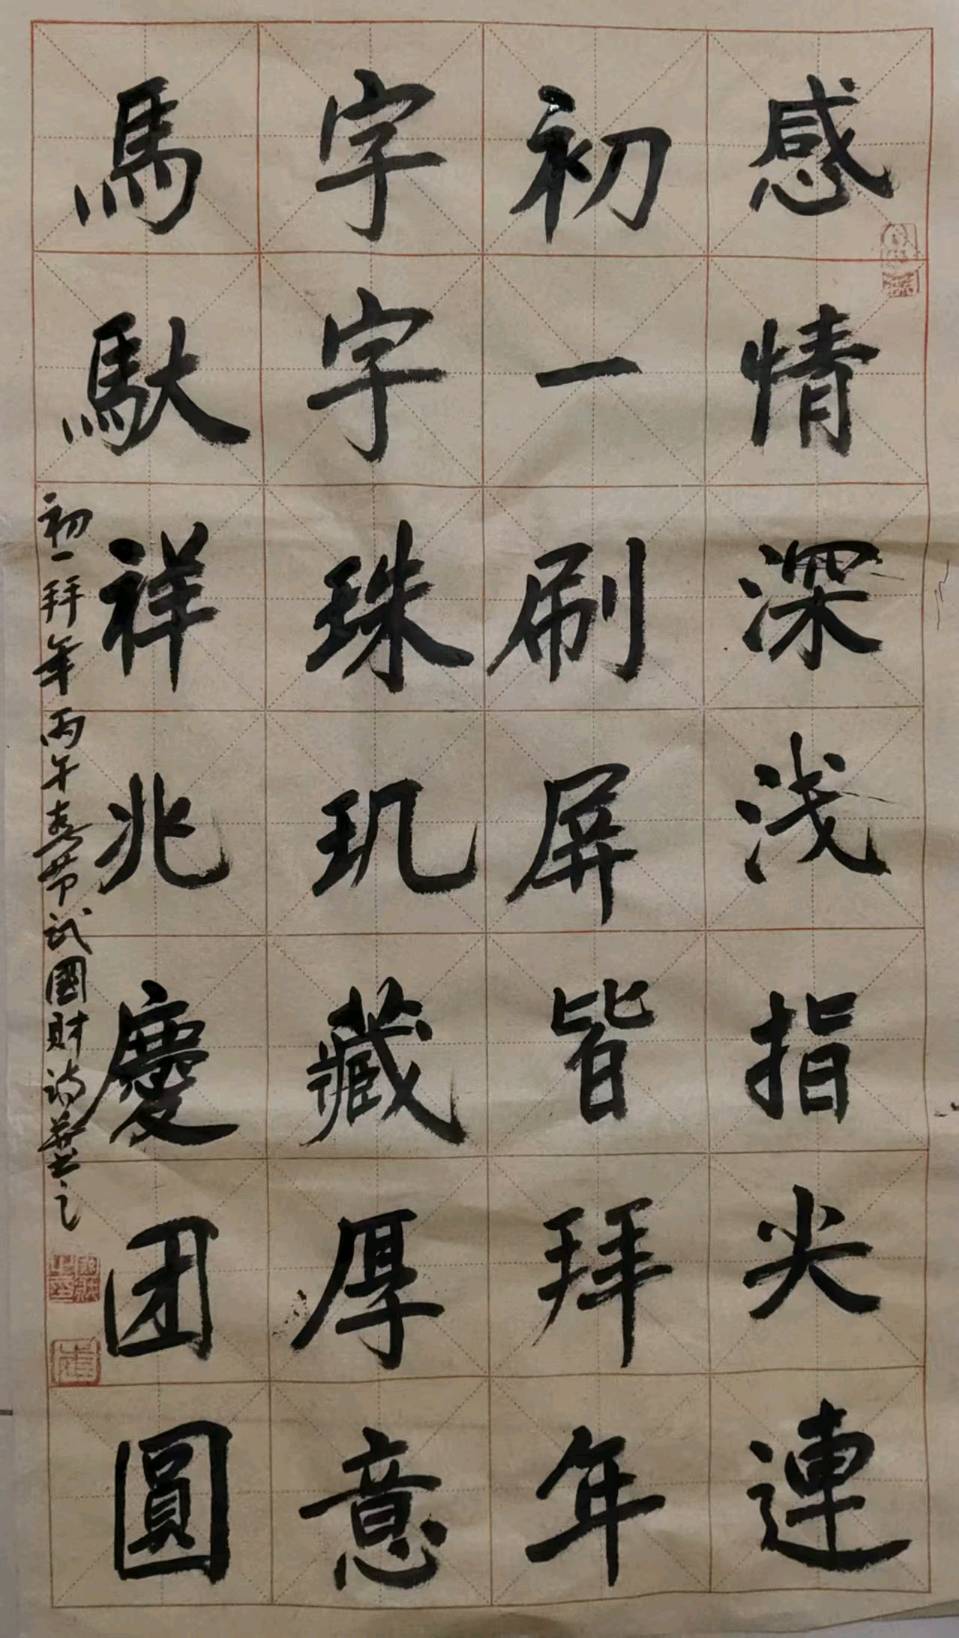 感情深浅指尖連
初一刷屏皆拜年
字字珠玑藏厚意
馬馱祥兆慶团圓
初一拜年丙午春节武國財詩並书之